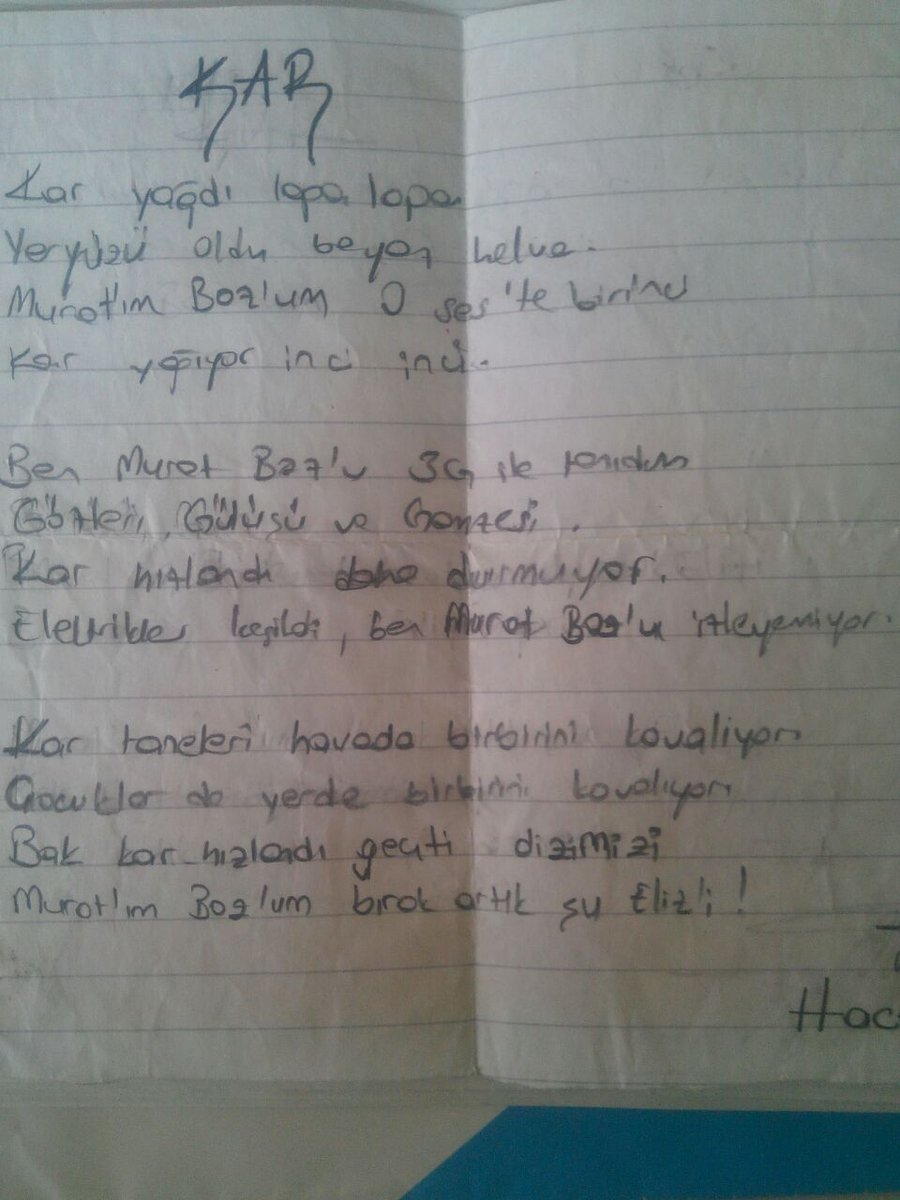 KAR
Kar yağdı lapa lapa
Yeryüzü oldu beyaz helva.
Murat'ım Boz'um O ses'te birinci
Kar yağıyor inci inci.
Ben Murat Boz'u 3G ile tanıdım
Gözleri, Gülüşü ve Gamzesi.
Kar hızlandı daha durmuyor.
Elektrikler kesildi, ben Murat Boz'u izleyemiyor.
Kar taneleri havada birbirini kovalıyor
Çocuklar da yerde birbirini kovalıyor
Bak kar hızlandı geçti dizimizi
Murat'ım Boz'um bırak artık şu Eliz'i!
Hac